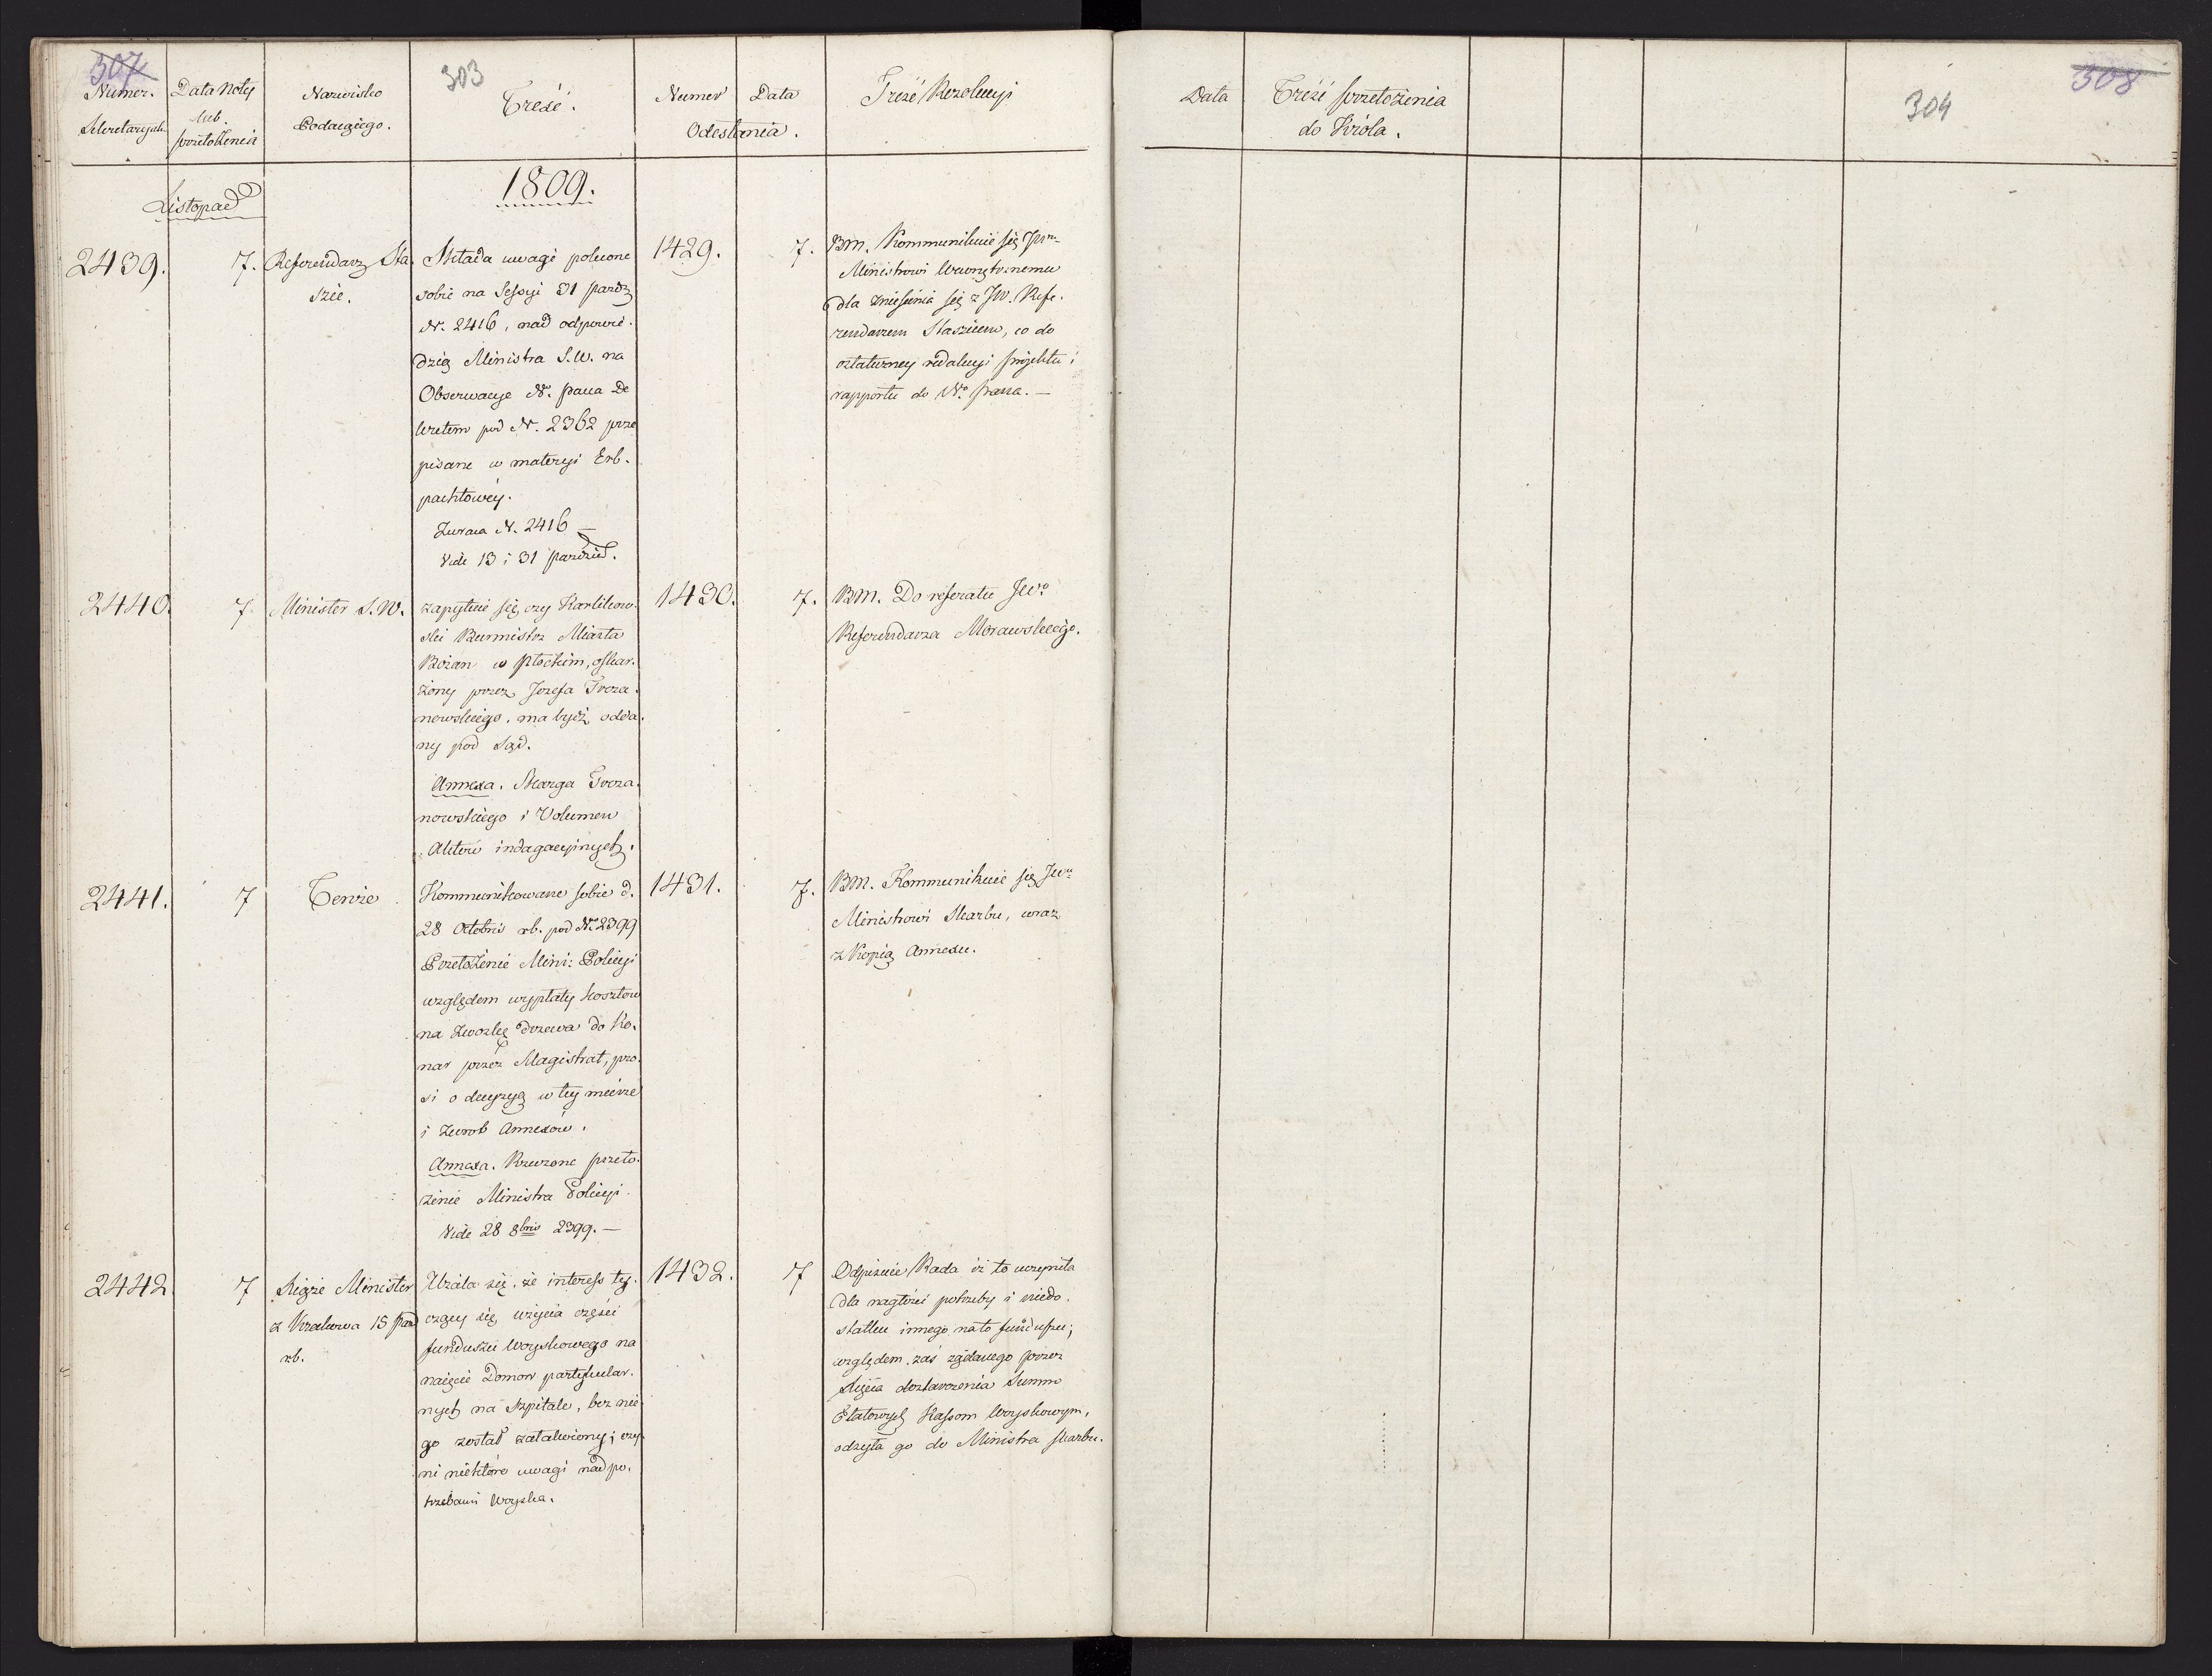 307
303
Numer.
Sekretaryats.
Data Noty
lub.
przełożenia
Nazwisko
Podaiącego.
Treść.
Numer Data
Odesłania.
Treść Rezolucyi
Listopad
1809.
2439.
7.
Referendarz Sta.
szic.
Składa uwagi polecone
sobie na Sessyi 31 paźdz
Nr. 2416, nad odpowie.
dzią Ministra S.W. na
Obserwacye N. pana De
kretem pod Nr. 2362 prze
pisane w materyi Erb.
pachtowéy.
Zwraca N. 2416 —
Vide 13 i 31 paździer.
1429.
7.
BM. Kommunikuie się JW
Ministrowi Wewnętrznemu
dla zniesienia się z JW. Refe.
rendarzem Staszicem, co do
ostateczney redakcyi projektu i
rapportu do No. pana. —
2440.
7.
Minister S.W.
zapytuie się, czy Karlikow.
ski Burmistrz Miasta
Rożan w płockim, oskar.
żony przez Jozefa Trcza.
nowskiego, ma bydź odda.
ny pod Sąd.
Annexa. Skarga Trcza.
nowskiego i Volumen
Aktów indagacyinych.
1430.
7.
BM. Do referatu JWo
Referendarza Morawskiego.
2441.
7
Tenże
Kommunikowane sobie d.
28 Octobris rb. pod No 2399
Przełożenie Mini: Policyi
względem wypłaty kosztów
na zwozkę drzewa do Ko.
nar przez Magistrat, pro.
si o decyzyą w tey mierze
i zwrot Annexów.
Annexa. Rzeczone przeło.
żenie Ministra Policyi.
Vide 28 8bris 2399. —
1431.
7.
BM. Kommunikuie się JW
Ministrowi Skarbu, wraz
z Kopią Annexu.
2442
7
Xiąże Minister
z Krakowa 15 paźd
rb.
Użala się, że interess ty.
czący się użycia części
funduszu Woyskowego na
naięcie Domow partykular.
nych na Szpitale, bez nie.
go został załatwiony; czy.
ni niektóre uwagi nad po.
trzebami Woyska.
1432.
7
Odpisuie Rada iż to uczyniła
dla nagłości potrzeby i niedo.
statku innego na to funduszu;
względem zaś żądanego przez
Xięcia dostarczenia Summ
Etatowych Kassom Woyskowym,
odsyła go do Ministra skarbu.
Data
Treść przełożenia
do Króla.
304
308